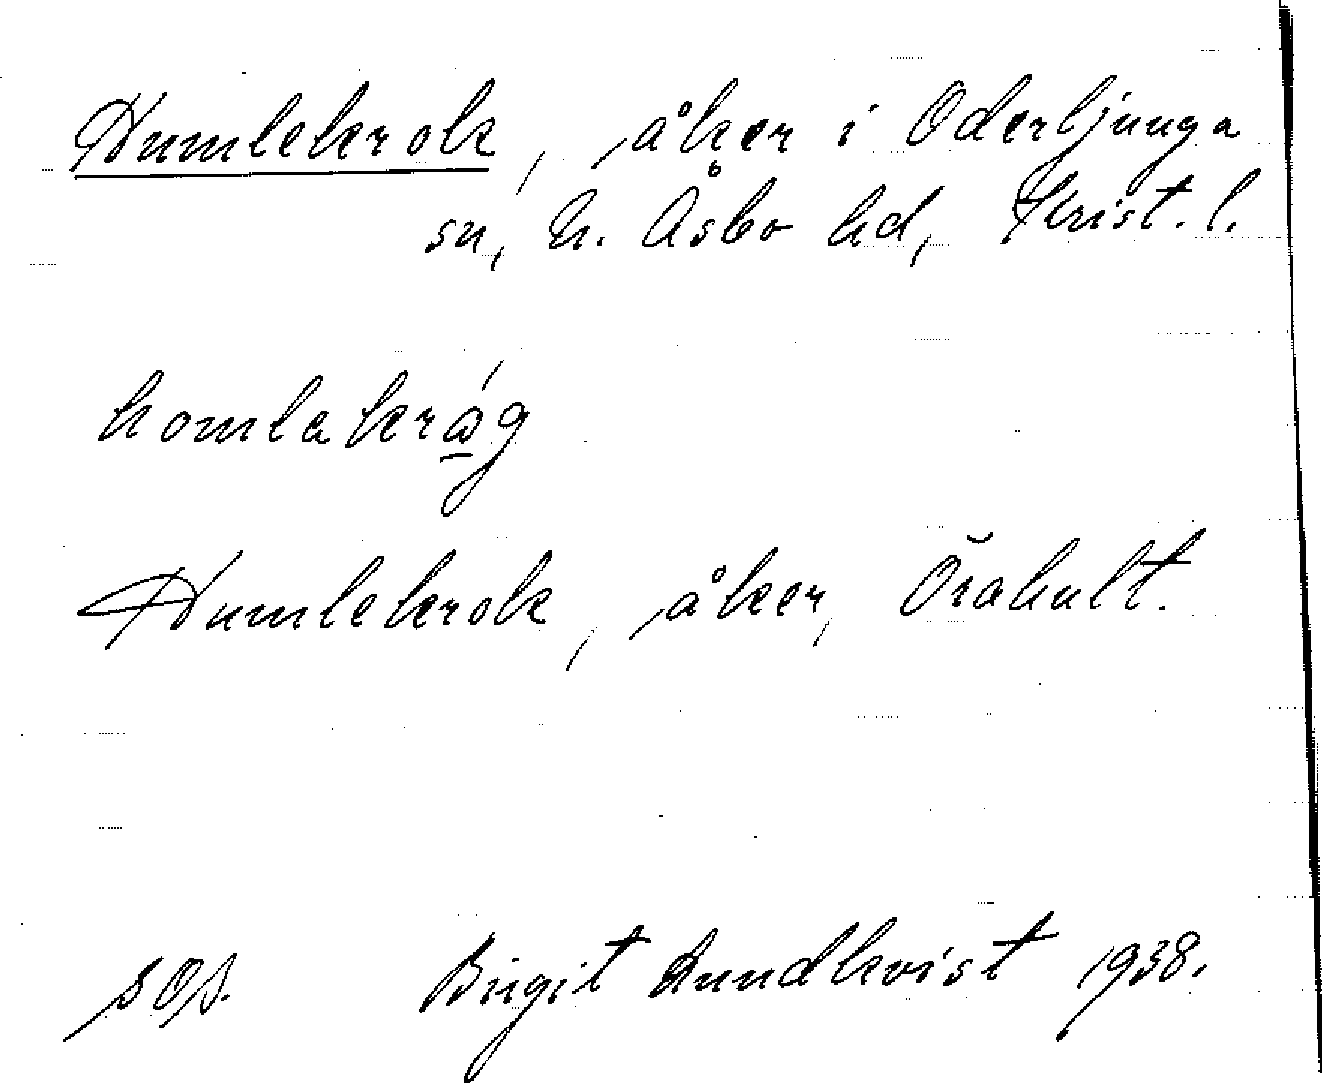 Humlekrok, åker i Oderljunga
sn, N. Åsbo hd, Krist. l.
homlakrág
Humlekrok, åker, Örahult.
sOs. Birgit Lundkvist 1938.